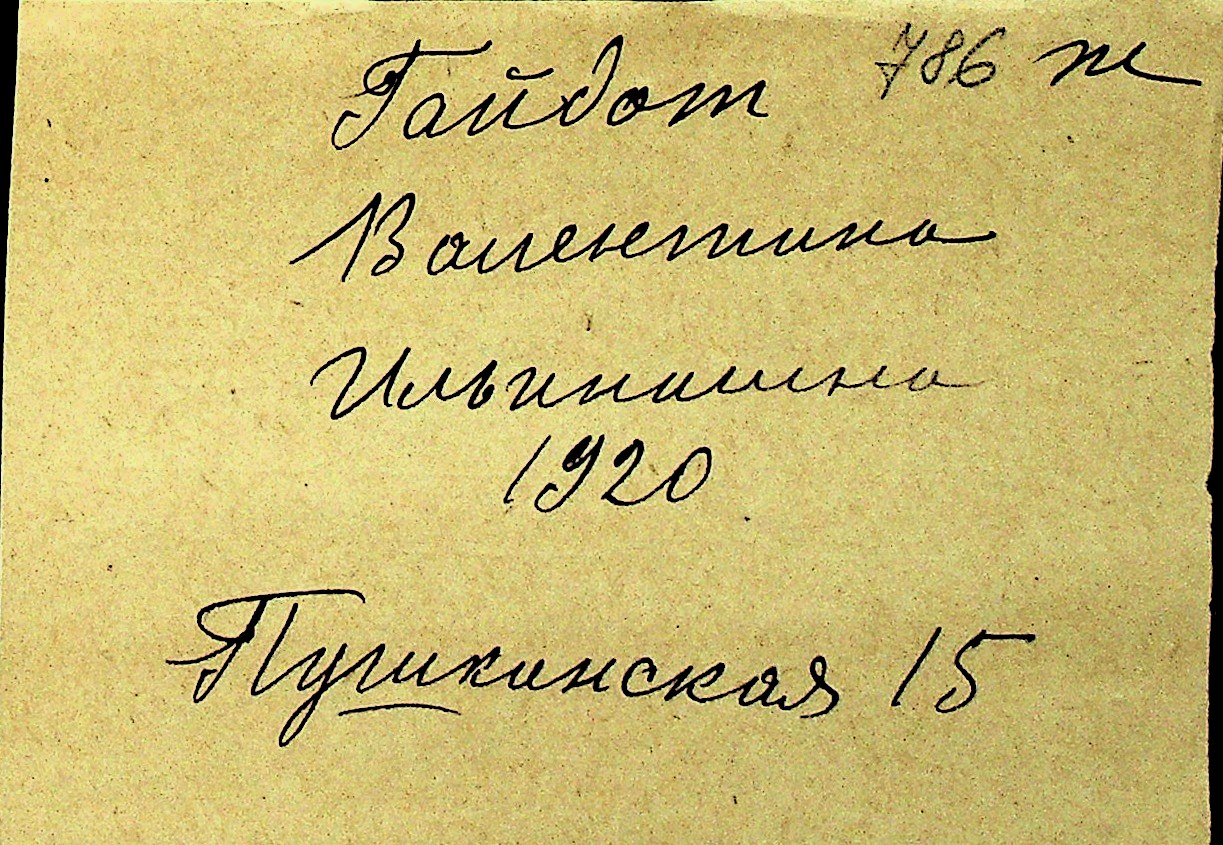 Гайдот 786 ж
Валентина
Ильинишна
1920
Пушкинская 15